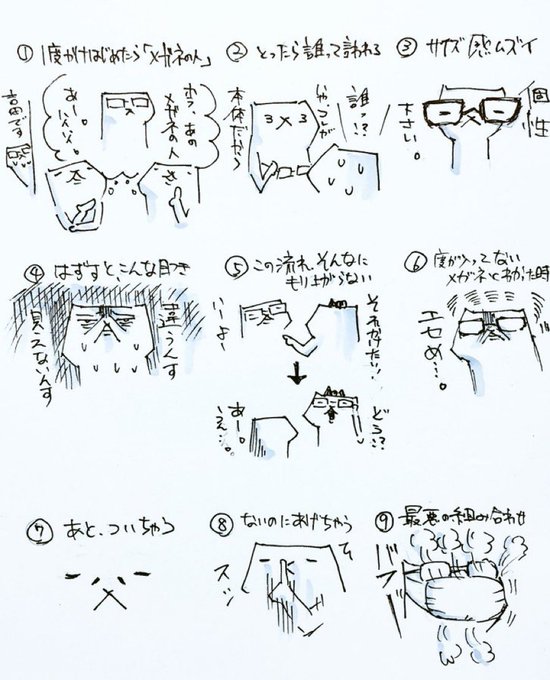 ① 1度かけはじめたら「メガネの人」
ホラ、あの
メガネの人
あー。
ハイハイ。
高田です
② とったら誰って言われる
誰っ!?
いや、コレが
本体だから
③ サイズ感ムズイ
個性
ださい。
④ はずすと、こんな目つき
違うんす
見えないんす
⑤ この流れ、そんなに
もり上がらない
それかけたい!
いーよー
どう!?
あー。
いえー。
⑥ 度が入ってない
メガネとわかった時
エセめ…。
⑦ あと、ついちゃう
⑧ ないのにあげちゃう
スッ
⑨ 最悪の組み合わせ
バフー